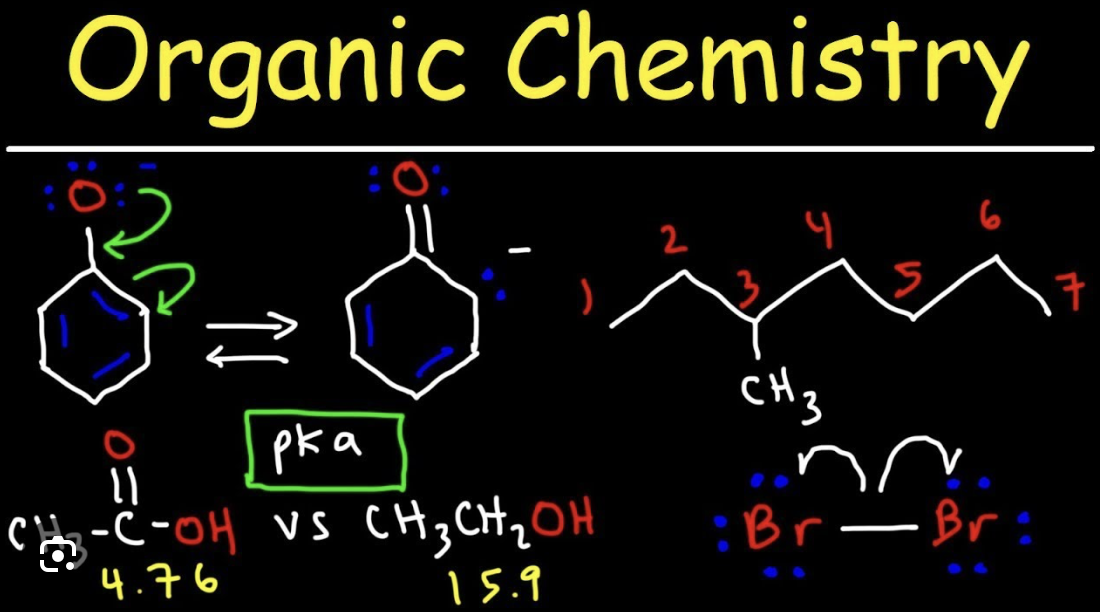 Organic Chemistry
O
O
1 2 3 4 5 6 7
CH3
pka
O
CH3-C-OH vs CH3CH2OH
4.76 15.9
Br Br